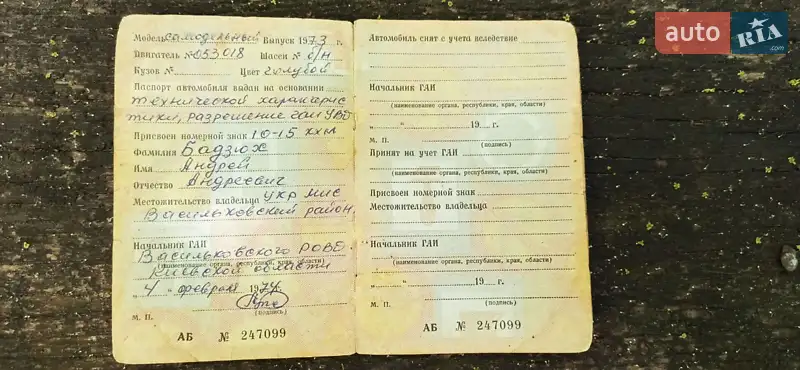 Модель самодельный Выпуск 1973 г.
Двигатель № 053018 Шасси № б/н
Кузов № Цвет голубой
Паспорт автомобиля выдан на основании
технической характерис
тики, разрешение ГАИ УВД
Присвоен номерной знак 10-15 ххм
Фамилия Бадзюх
Имя Андрей
Отчество Андреевич
Местожительство владельца УКР МИС
Васильковский район.
Начальник ГАИ
Васильковского РОВД
(наименование органа, республики, края, области)
Киевской области
„4“ февраля 1974г.
М. П. (подпись)
АБ № 247099
Автомобиль снят с учета вследствие
Начальник ГАИ
(наименование органа, республики, края, области)
„ “ 19 г.
М. П. (подпись)
Принят на учет ГАИ
(наименование органа, республики, края, области)
Присвоен номерной знак
Местожительство владельца
Начальник ГАИ
(наименование органа, республики, края, области)
„ “ 19 г.
М. П. (подпись)
АБ № 247099
auto RIA
.com